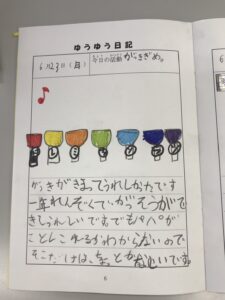 ゆうゆう日記
6月23日(月)
今日の活動 がっきぎめ。
ド レ ミ ファ ソ ラ シ
がっきがきまってうれしかったです
一年れんぞくていがっそうがで
きしうれしいですでもパパが
ことしこれるかわからないので
そこだけは、ちょとかなしいです。
6